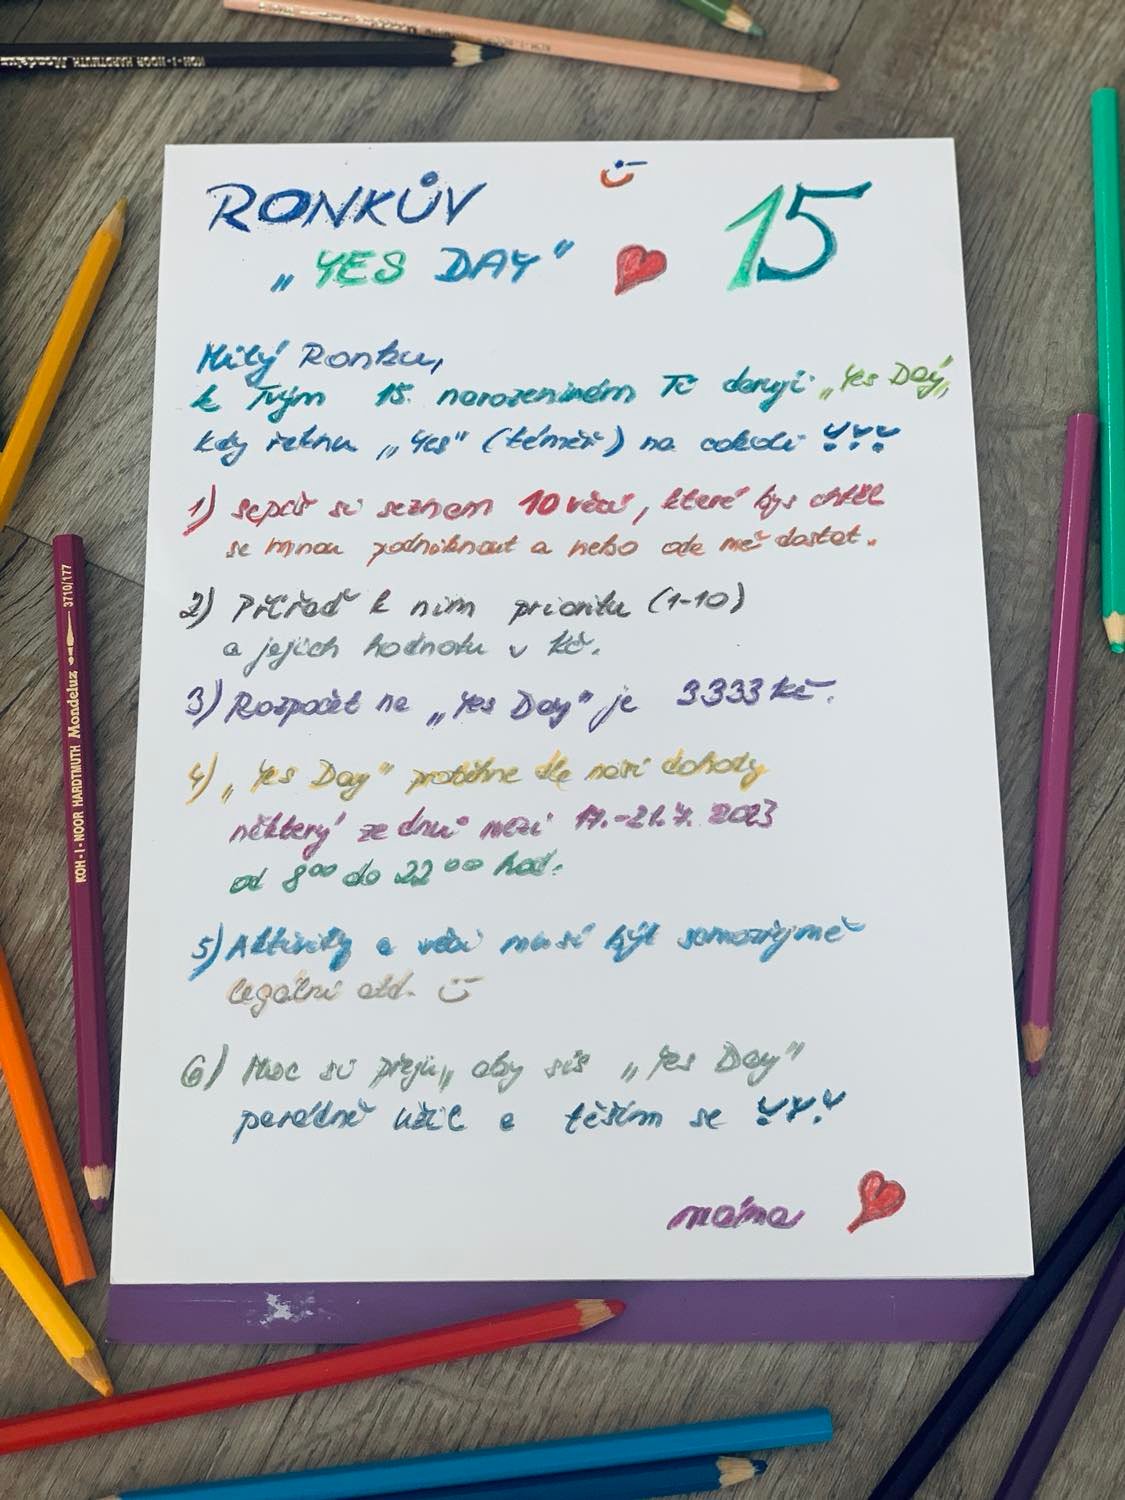 KOH-I-NOOR HARDTMUTH Mondeluz
RONKŮV
„YES DAY"
15
Milý Ronku,
k Tvým 15. narozeninám Ti daruji „Yes Day",
kdy řeknu „Yes" (téměř) na cokoli !!!
1) sepiš si seznam 10 věcí, které bys chtěl
se mnou podniknout a nebo ode mě dostat.
2) Přiřaď k nim prioritu (1-10)
a jejich hodnotu v Kč.
3) Rozpočet na „Yes Day" je 3333 Kč.
4) „Yes Day" proběhne dle naší dohody
některý ze dnů mezi 17.-21.7. 2023
od 8⁰⁰ do 22⁰⁰ hod.
5) Aktivity a věci musí být samozřejmě
legální atd.
6) Moc si přeju, aby sis „Yes Day"
parádně užil a těším se !!!
máma
KOH-I-NOOR HARDTMUTH Mondeluz 3710/177